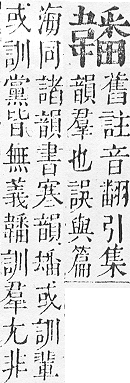 舊註音翻引集韻羣也誤與篇
海同諸韻書寒韻或訓輩
或訓黨皆無義訓羣尤非